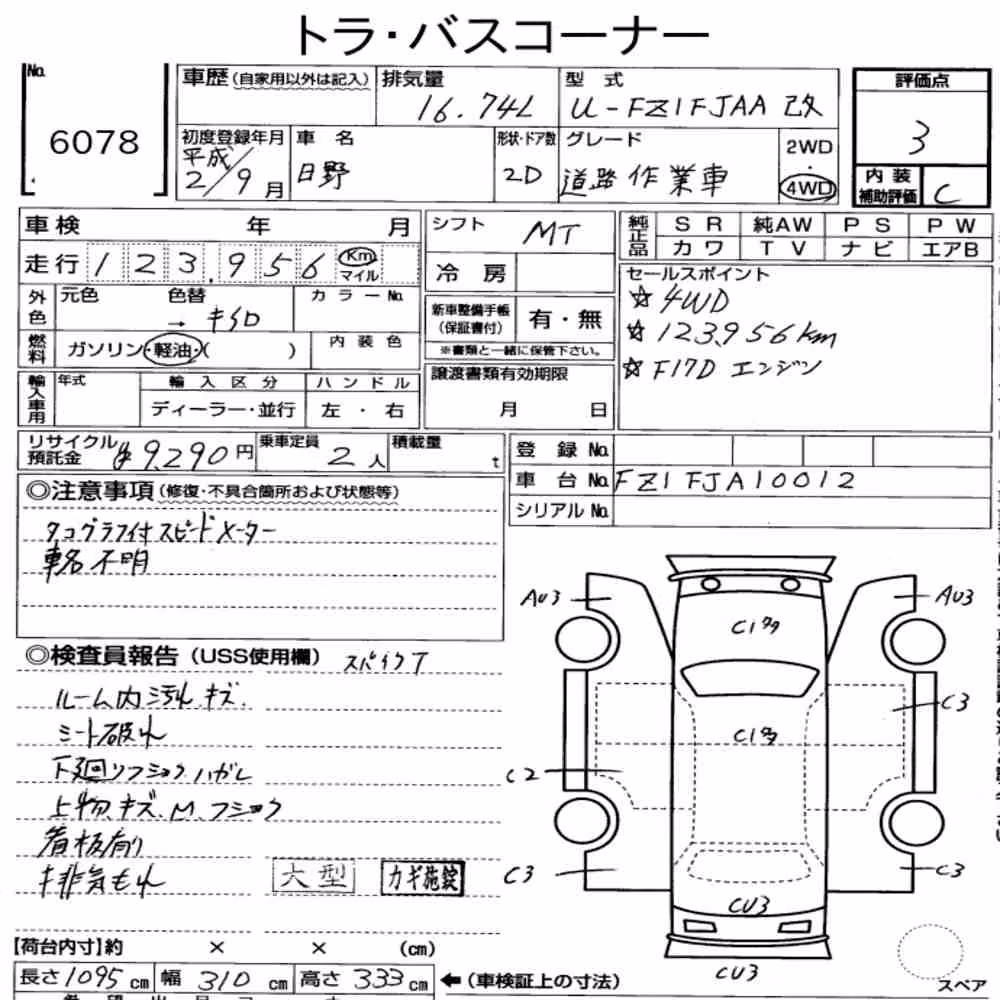 トラ・バスコーナー
No. 6078
車歴（自家用以外は記入） 排気量 16.74L 型式 U-FZ1FJAA 改
評価点 3
初度登録年月 平成 2/9月 車名 日野 形状・ドア数 2D グレード 道路作業車 2WD・4WD
内装補助評価 C
車検 年 月 シフト MT
純正品 SR 純AW PS PW
カワ TV ナビ エアB
走行 123,956 Km マイル 冷房
セールスポイント
☆4WD
☆123,956km
☆F17D エンジン
外色 元色 色替 → キイロ カラーNo.
新車整備手帳（保証書付） 有・無
※書類と一緒に保管下さい。
燃料 ガソリン・軽油・( ) 内装色
輸入車用 年式 輸入区分 ハンドル
ディーラー・並行 左・右
譲渡書類有効期限
月 日
リサイクル預託金 ¥9,290円 乗車定員 2人 積載量 t
登録No.
車台No. FZ1FJA10012
シリアルNo.
◎注意事項（修復・不具合箇所および状態等）
タコグラフ付スピードメーター
車名不明
◎検査員報告（USS使用欄） スパイクT
ルーム内汚れ.キズ.
シート破れ
下廻リフショク.ハガレ
上物.キズ.M.フショク
看板有り
排気もれ
大型 カギ施錠
AU3 AU3
C1
C3
C1
C2
C3 C3
CU3
CU3
スペア
【荷台内寸】約 × × (cm)
長さ1095cm 幅310cm 高さ333cm ←（車検証上の寸法）